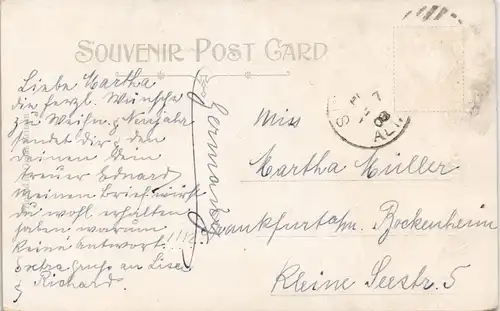 SOUVENIR POST CARD
Liebe Martha
die herzl. Wünsche
zu Weihn. & Neujahr
sendet dir, den
Deinen Dein
treuer Eduard
Meinen Brief wirst
du wohl erhalten
haben warum
keine Antwort!!!?
Extra gruss an Lise
& Richard
Germany
Miss
Martha Müller
Frankfurt a/m. Bockenheim
Kleine Seestr. 5
7
08